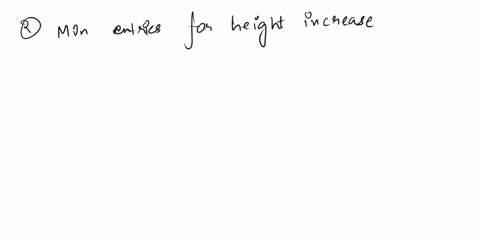 ② Min entries for height increase